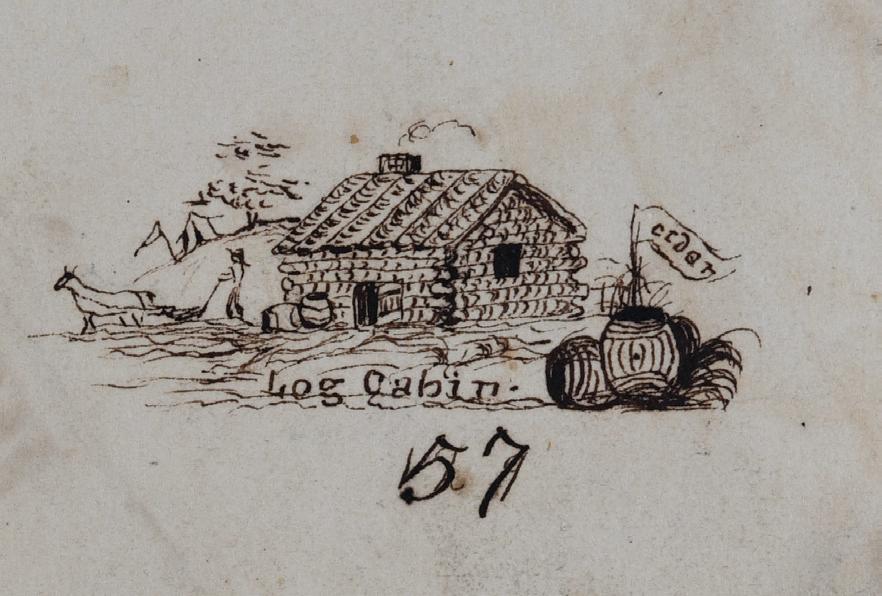 cider
Log Cabin.
57